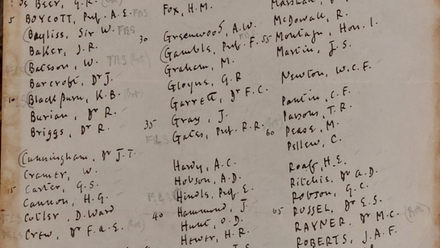 De Beer, G.R.
5 BOYCOTT, Prof. A.E. FRS
(Bayliss, Sir W. FRS
Baker, J.R.
(Bateson, W. FRS
Barcroft, Dr J.
10 Blackburn, K.B.
Burian, Dr R.
Briggs, Dr R.
(Cunningham, Dr J.T.
Cramer, W.
15 Carter, G.S.
Cannon, H.G.
Cutler, D. Ward
Crew, Dr F.A.E.
Fox, H.M.
30 Greenwood, A.W.
(Gamble, Prof F.
Graham, M.
Gloyne, G.R
Garrett, Dr F.C.
35 Gray, J.
Gates, Prof. R.R.
Hardy, A.C.
Hobson, A.D.
(Hindle, Prof. E.
40 Hammond, J.
Hunt, O.D.
Hewer, H.R.
McDowall, R.
Montagu, Hon. I.
55 Martin, J.S.
Newton, W.C.F.
Pantin, C.F.
Parsons, T.R.
60 Pease, M.
Pellew, C.
Roaf, H.E.
Ritchie, Dr A.D.
Robson, G.C.
65 RUSSEL, Dr E.S.
RAYNER, Dr M.C.
ROBERTS, J.A.F.